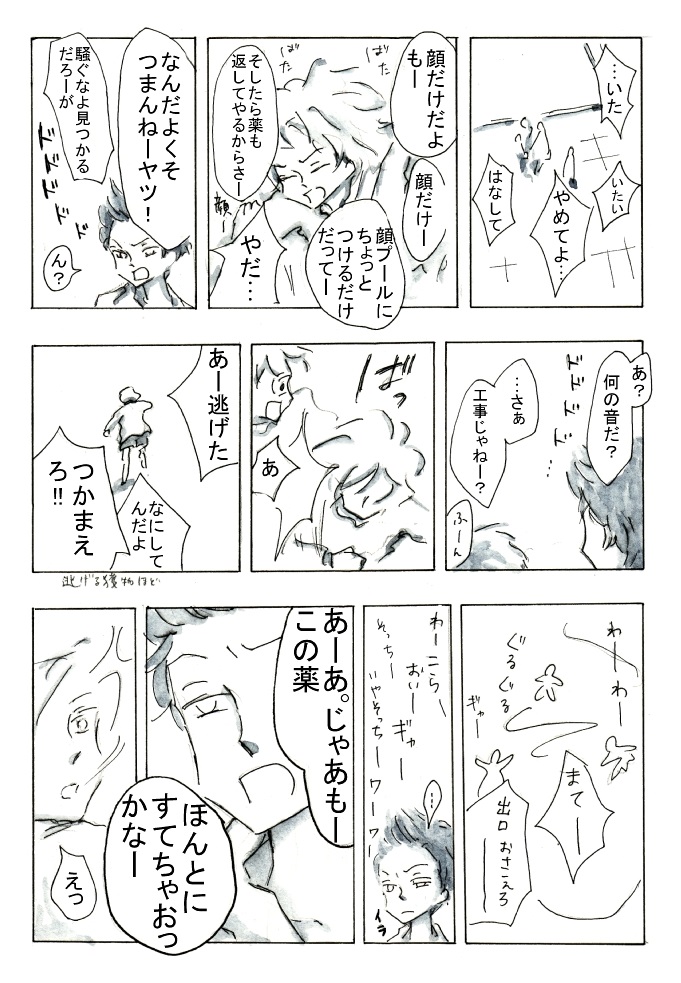 …いた
いたい
やめてよ…
はなして
顔だけだよ
もー
顔だけー
顔プールに
ちょっと
つけるだけ
だってー
ばた
ばた
そしたら薬も
返してやるからさー
顔ー
やだ…
なんだよくそ
つまんねーヤツ！
騒ぐなよ見つかる
だろーが
ドドドドド
ん？
あ？
何の音だ？
ドドドド
…
…さぁ
工事じゃねー？
ふーん
ばっ
あ
あー逃げた
なにして
んだよ
つかまえ
ろ!!
逃げる獲物ほど
わーわー
ぐるぐる
ギャー
まてー
出口 おさえろ
ー
わーこらー
おいー
ギャー
そっちー
いやそっちー
ワーワー
…
イラ
あーあ。じゃあもー
この薬
ほんとに
すてちゃおっ
かなー
えっ